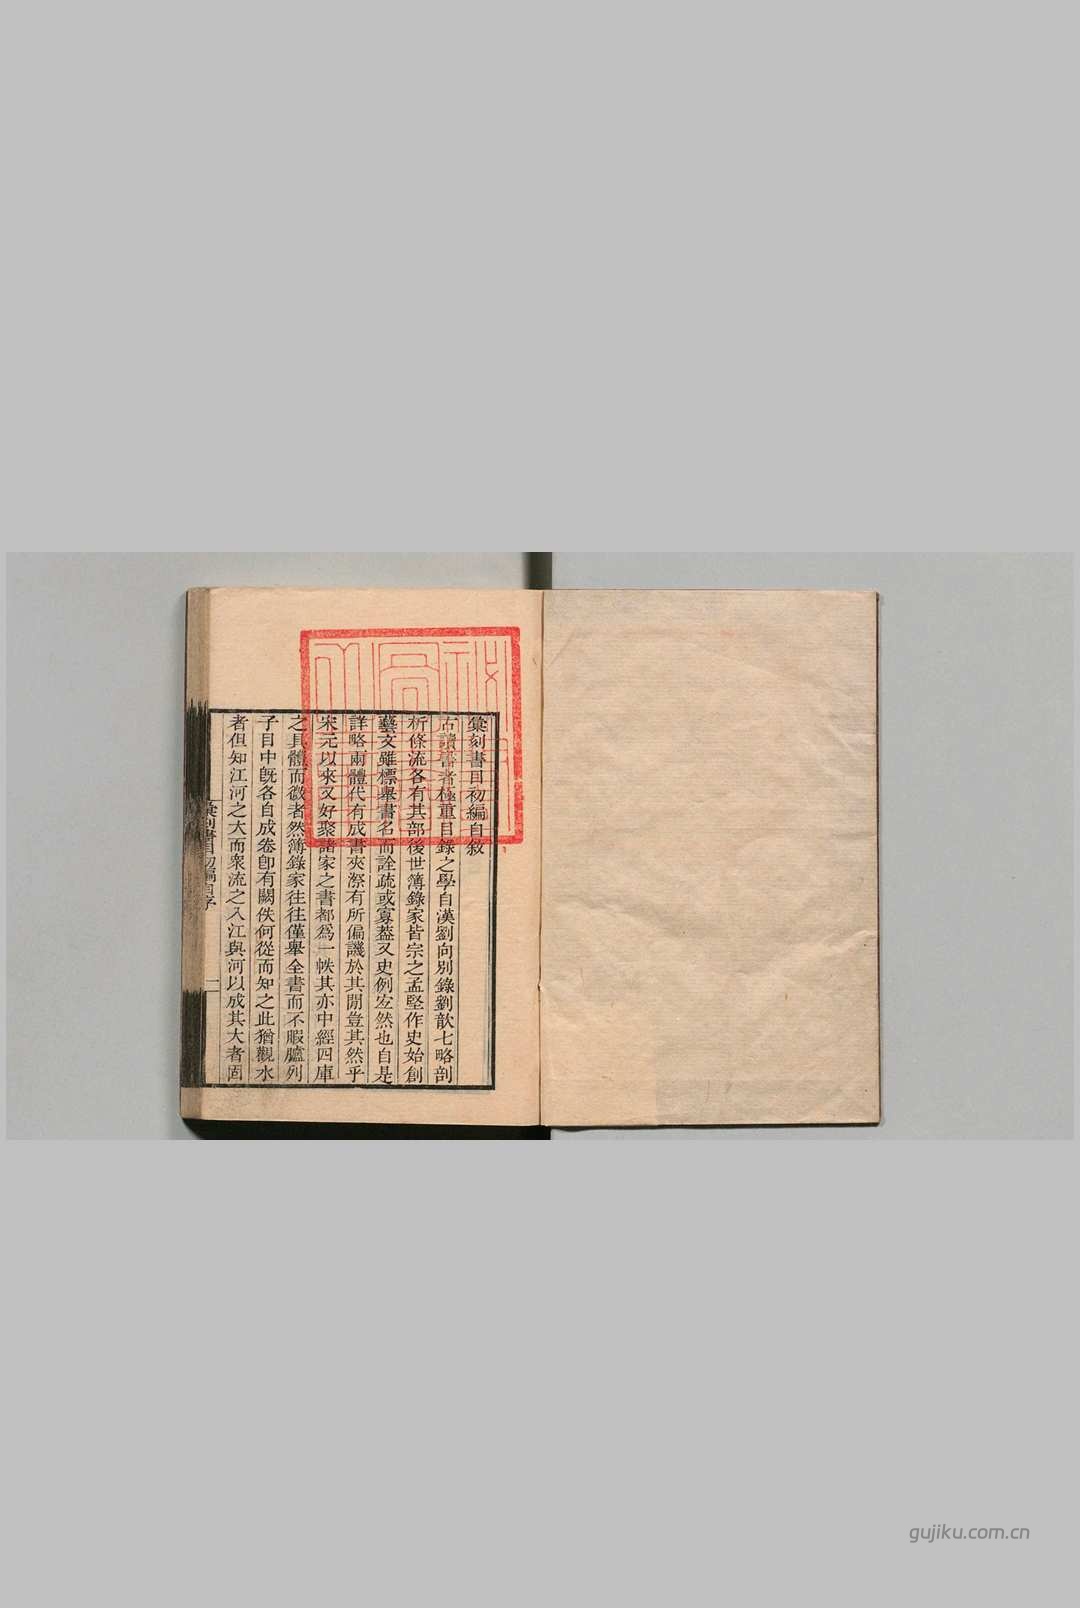 彙刻書目初編自敘
古讀書者極重目錄之學自漢劉向別錄劉歆七略剖
析條流各有其部後世簿錄家皆宗之孟堅作史始創
藝文雖標舉書名而詮疏或寡葢又史例宏然也自是
詳略兩體代有成書夾漈有所偏譏於其閒豈其然乎
宋元以來又好聚諸家之書都爲一帙其亦中經四庫
之具體而微者然簿錄家往往僅舉全書而不暇臚列
子目中旣各自成卷卽有闕佚何從而知之此猶觀水
者但知江河之大而衆流之入江與河以成其大者固
彙刻書目初編自序
一
gujiku.com.cn